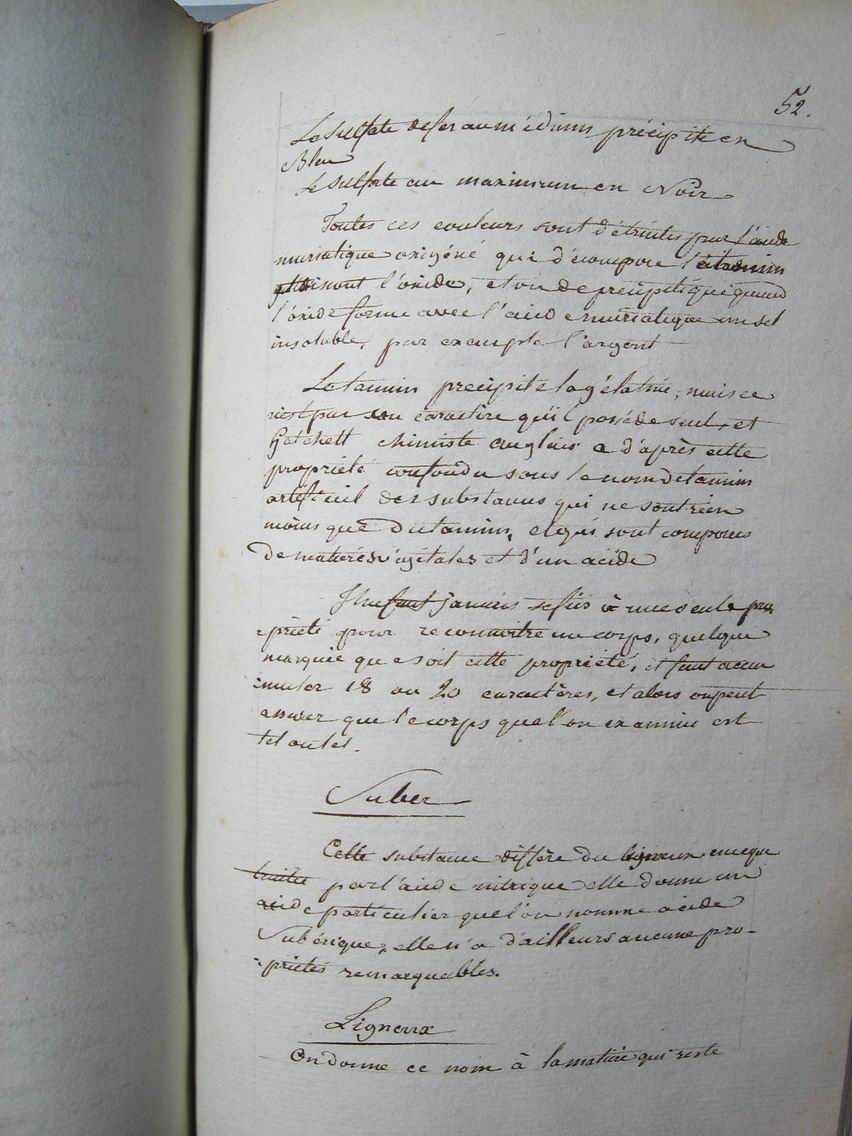 52.
Le sulfate de fer au médium précipite en
Bleu
Le sulfate au maximum en Noir
Toutes ces couleurs sont détruites par l'acide
muriatique oxigéné qui décompose l'étamin
l'oxide, et on de précipité que quand
l'oxide forme avec l'acide muriatique un sel
insoluble, par exemple l'argent
Le tannin precipite la gélatine, mais ce
n'est pas un caractère qu'il possède seul, et
Hatchett chimiste anglais a d'après cette
propriété confondu sous le nom de tannin
artificiel des substances qui ne sont rien
moins que du tannin, et qui sont composés
de matières végétales et d'un acide
Il ne faut jamais se fier à une seule pro
-priété pour reconnoitre un corps, quelque
marquée que soit cette propriété, il faut accu
-muler 18 ou 20 caractères, et alors on peut
assurer que le corps que l'on examine est
tel ou tel.
Suber
Cette substance diffère du ligneux en ce que
traitée par l'acide nitrique elle donne un
acide particulier que l'on nomme acide
Subérique, elle n'a d'ailleurs aucune pro-
-priétés remarquables.
Ligneux
On donne ce nom à la matière qui reste